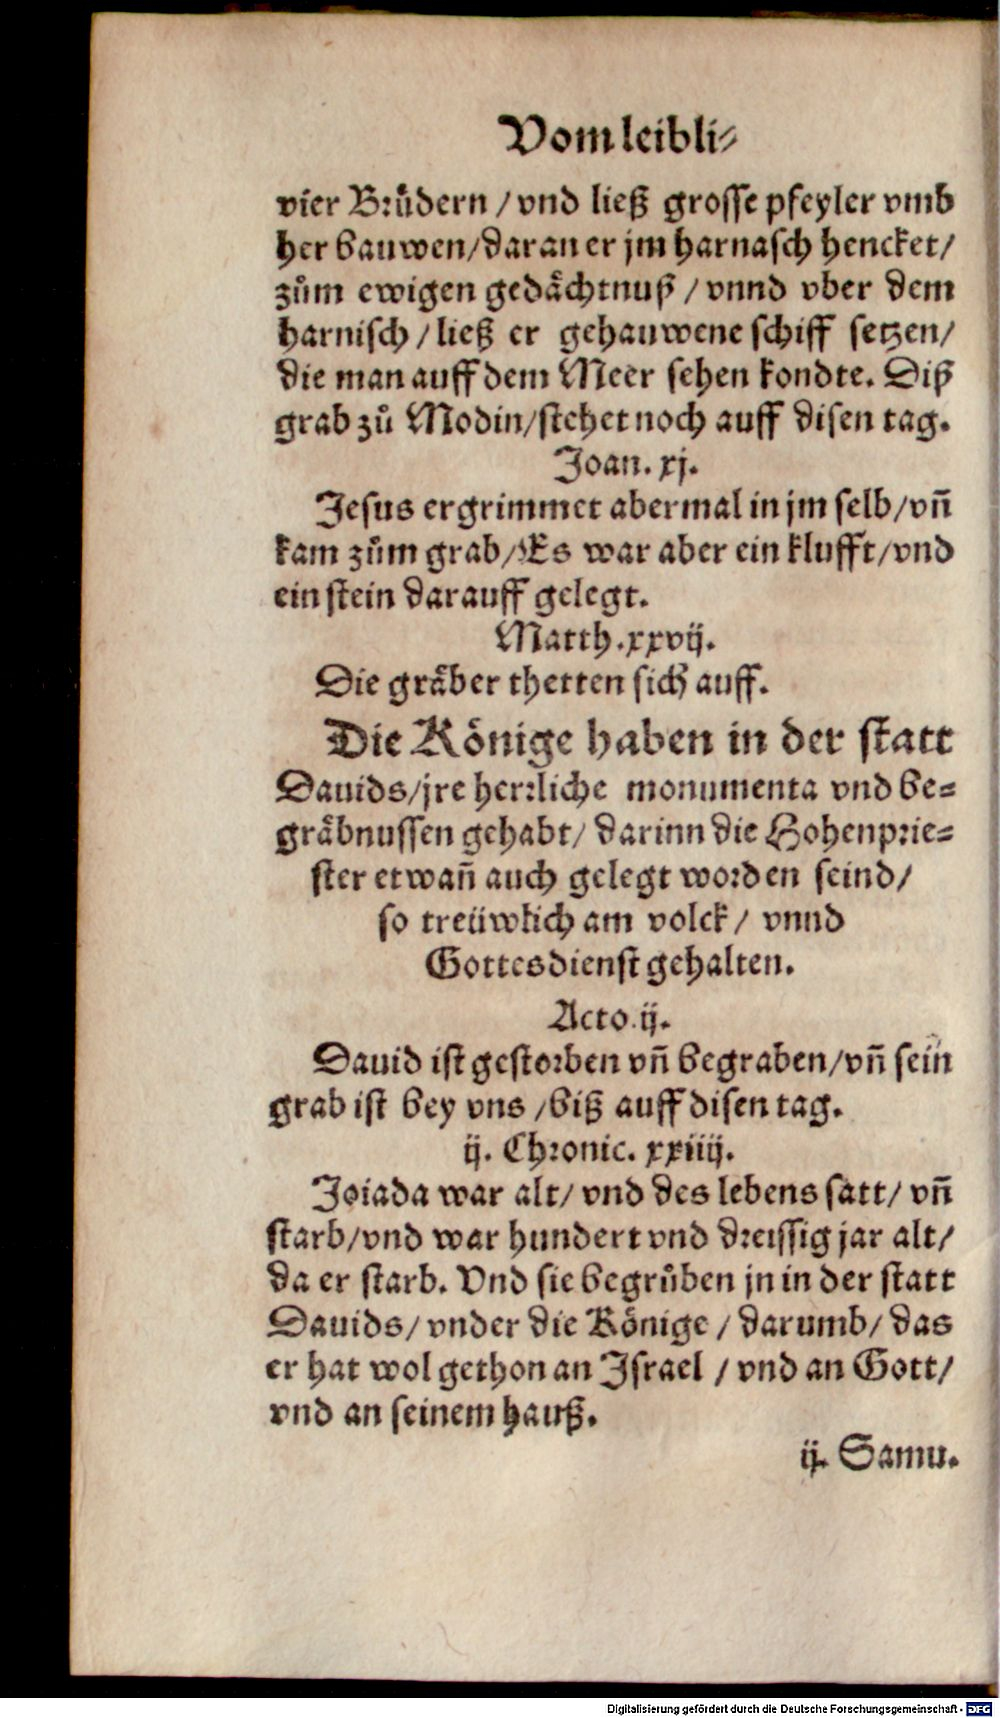 Vom leibli⸗
vier Bruͤdern / vnd ließ grosse pfeyler vmb
her bauwen / daran er jm harnasch hencket /
zuͦm ewigen gedaͤchtnuß / vnnd vber dem
harnisch / ließ er gehauwene schiff setzen /
die man auff dem Meer sehen kondte. Diß
grab zuͦ Modin / stehet noch auff disen tag.
Joan. xj.
Jesus ergrimmet abermal in jm selb / vñ
kam zuͦm grab / Es war aber ein klufft / vnd
ein stein darauff gelegt.
Matth. xxvij.
Die graͤber thetten sich auff.
Die Koͤnige haben in der statt
Dauids / jre herrliche monumenta vnd be⸗
graͤbnussen gehabt / darinn die Hohenprie⸗
ster etwañ auch gelegt worden seind /
so treüwlich am volck / vnnd
Gottesdienst gehalten.
Acto. ij.
Dauid ist gestorben vñ begraben / vñ sein
grab ist bey vns / biß auff disen tag.
ij. Chronic. xxiiij.
Joiada war alt / vnd des lebens satt / vñ
starb / vnd war hundert vnd dreissig jar alt /
da er starb. Vnd sie begruͦben jn in der statt
Dauids / vnder die Koͤnige / darumb / das
er hat wol gethon an Israel / vnd an Gott /
vnd an seinem hauß.
ij. Samu.
Digitalisierung gefördert durch die Deutsche Forschungsgemeinschaft - DFG